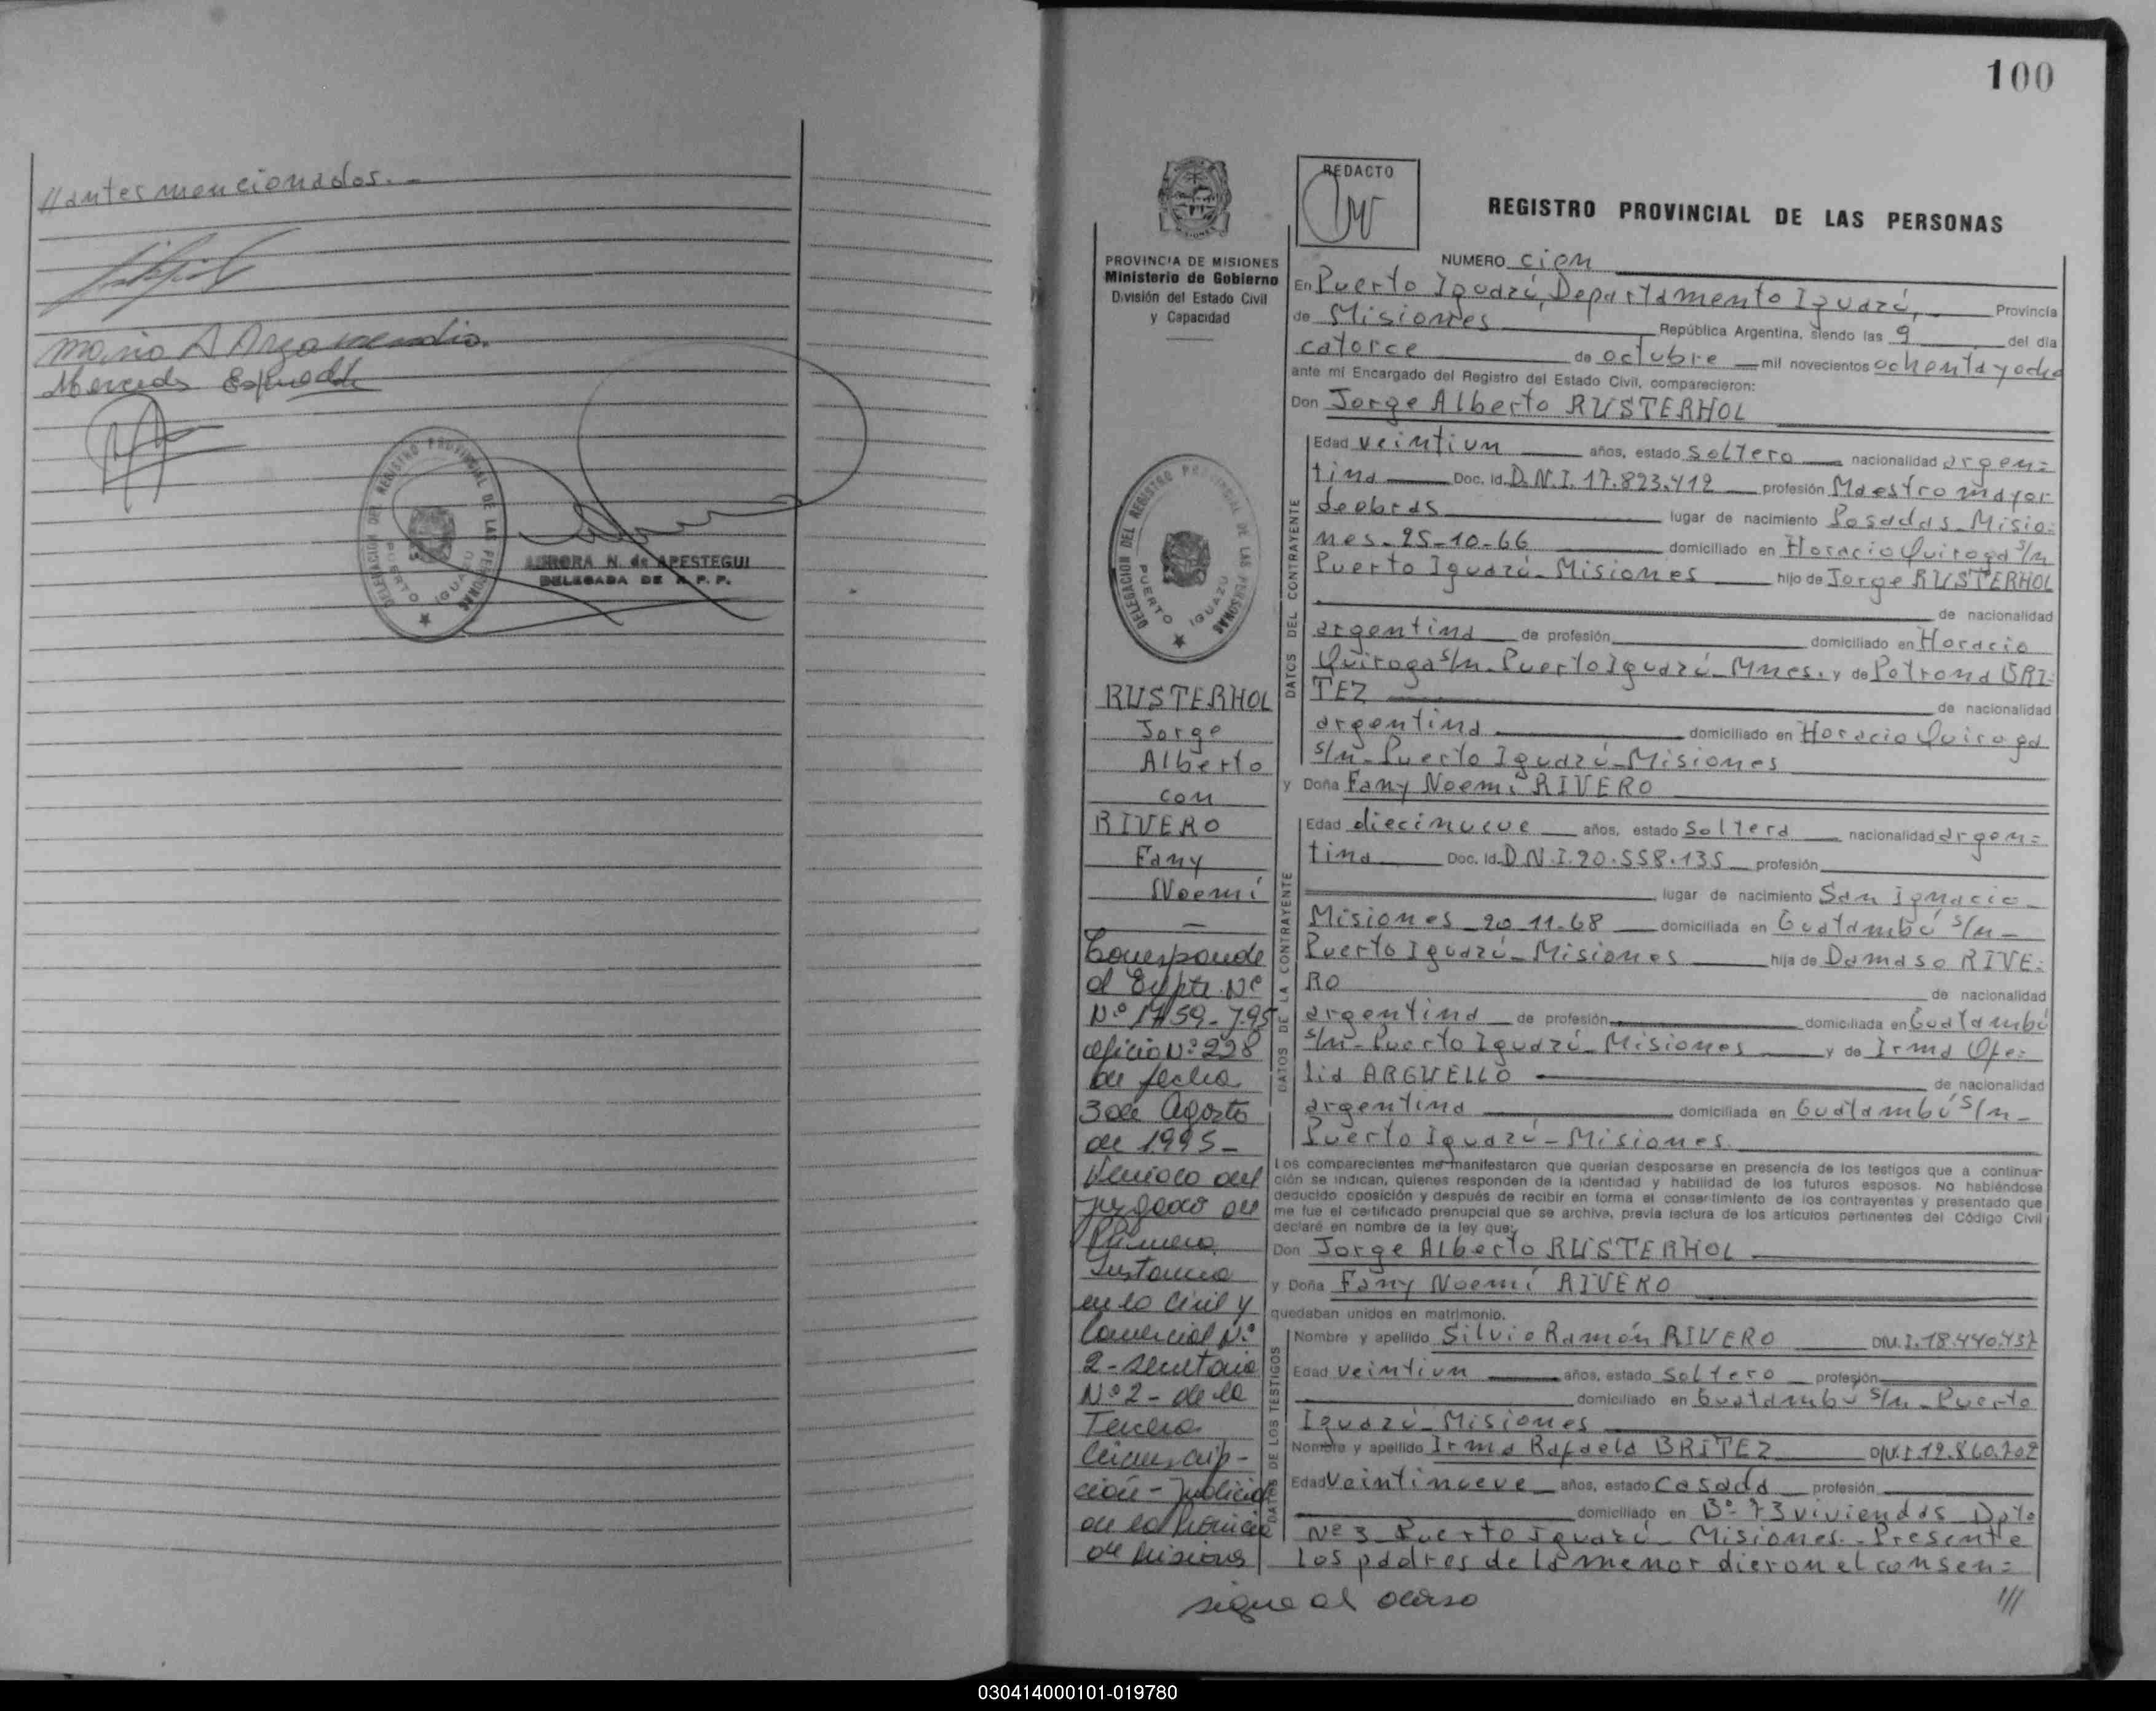 //antes mencionados.-
Mario A Argamendia.
Mercedes
DELEGACION DEL REGISTRO PROVINCIAL DE LAS PERSONAS
PUERTO IGUAZU
AURORA N. de APESTEGUI
DELEGADA DE R. P. P.
100
REDACTO
REGISTRO PROVINCIAL DE LAS PERSONAS
PROVINCIA DE MISIONES
Ministerio de Gobierno
División del Estado Civil
y Capacidad
DELEGACION DEL REGISTRO PROVINCIAL DE LAS PERSONAS
PUERTO IGUAZU
RUSTERHOL
Jorge
Alberto
con
RIVERO
Fany
Noemí
Corresponde
al Expte. Nº
Nº 1759-795
oficio Nº 228
de fecha
3 de Agosto
de 1995-
del
Juzgado de
Primera
Instancia
en lo Civil y
Comercial Nº
2 - Secretaria
Nº 2 - de la
Tercera
Circunscrip-
ción - Judicial
de la Provincia
de Misiones
sigue al dorso
NUMERO cien
En Puerto Iguazú, Departamento Iguazú,.- Provincia
de Misiones República Argentina, siendo las 9 del día
catorce de octubre mil novecientos ochenta y ocho
ante mí Encargado del Registro del Estado Civil, comparecieron:
Don Jorge Alberto RUSTERHOL
DATOS DEL CONTRAYENTE
Edad veintiun años, estado soltero nacionalidad argen=
tina Doc. Id. D.N.I. 17.823.412 profesión Maestro mayor
de obras lugar de nacimiento Posadas_Misio=
nes_25-10-66 domiciliado en Horacio Quiroga s/n
Puerto Iguazú_Misiones hijo de Jorge RUSTERHOL
de nacionalidad
argentina de profesión domiciliado en Horacio
Quiroga s/n_Puerto Iguazú_Mnes. y de Petrona BRI=
TEZ de nacionalidad
argentina domiciliado en Horacio Quiroga
s/n_Puerto Iguazú_Misiones
y Doña Fany Noemí RIVERO
DATOS DE LA CONTRAYENTE
Edad diecinueve años, estado soltera nacionalidad argen=
tina Doc. Id. D.N.I.20.558.135 profesión
lugar de nacimiento San Ignacio_
Misiones_20.11.68 domiciliada en Guatambú s/n_
Puerto Iguazú_Misiones hija de Damaso RIVE=
RO de nacionalidad
argentina de profesión domiciliada en Guatambú
s/n_Puerto Iguazú_Misiones y de Irma Ofe=
lia ARGUELLO de nacionalidad
argentina domiciliada en Guatambú s/n_
Puerto Iguazú-Misiones.
Los comparecientes me manifestaron que querían desposarse en presencia de los testigos que a continua-
ción se indican, quienes responden de la identidad y habilidad de los futuros esposos. No habiéndose
deducido oposición y después de recibir en forma el consentimiento de los contrayentes y presentado que
me fue el certificado prenupcial que se archiva, previa lectura de los artículos pertinentes del Código Civil
declaré en nombre de la ley que:
Don Jorge Alberto RUSTERHOL
y Doña Fany Noemí RIVERO
quedaban unidos en matrimonio.
DATOS DE LOS TESTIGOS
Nombre y apellido Silvio Ramón RIVERO DN.I.18.440.437
Edad veintiun años, estado soltero profesión
domiciliado en Guatambú s/n_Puerto
Iguazú_Misiones
Nombre y apellido Irma Rafaela BRITEZ D.N.I.12.860.702
Edad veintinueve años, estado casada profesión
domiciliado en Bº 73 viviendas Dpto
Nº 3_Puerto Iguazú_Misiones._Presente
los padres de la menor dieron el consen=
///
030414000101-019780